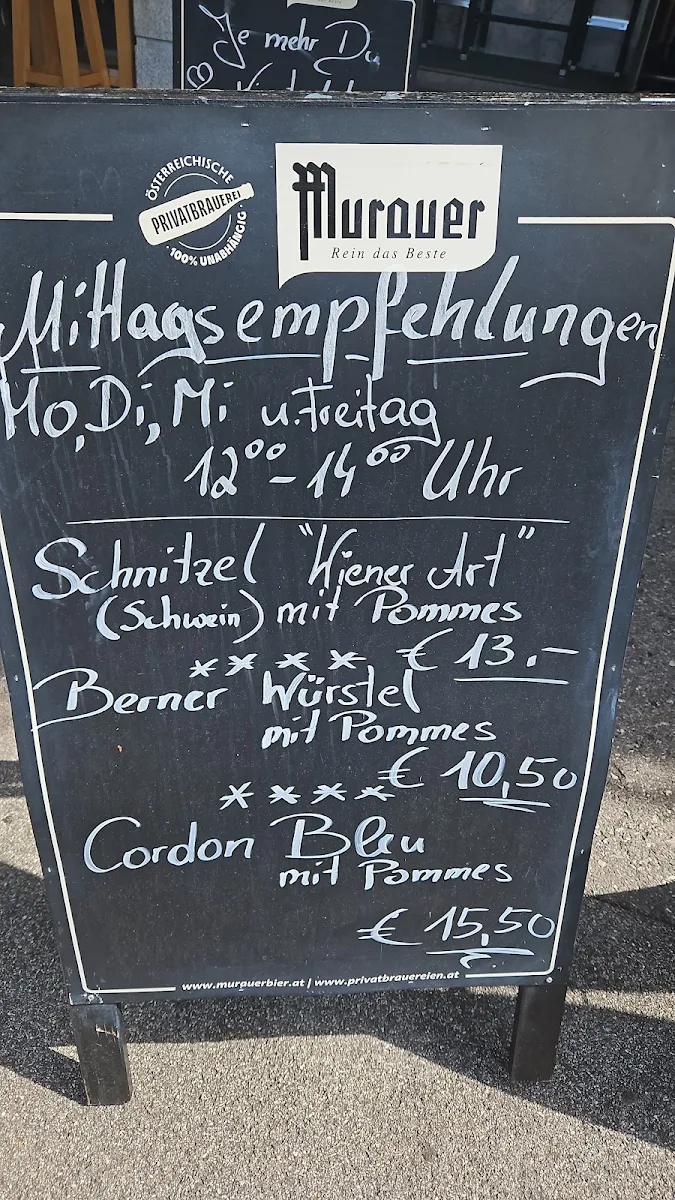 Je mehr Du
ÖSTERREICHISCHE
PRIVATBRAUEREI
· 100% UNABHÄNGIG ·
Murauer
Rein das Beste
Mittagsempfehlungen
Mo, Di, Mi u. Freitag
12⁰⁰ - 14⁰⁰ Uhr
Schnitzel "Wiener Art"
(Schwein) mit Pommes
€ 13.-
****
Berner Würstel
mit Pommes
€ 10,50
****
Cordon Bleu
mit Pommes
€ 15,50
www.murauerbier.at | www.privatbrauereien.at